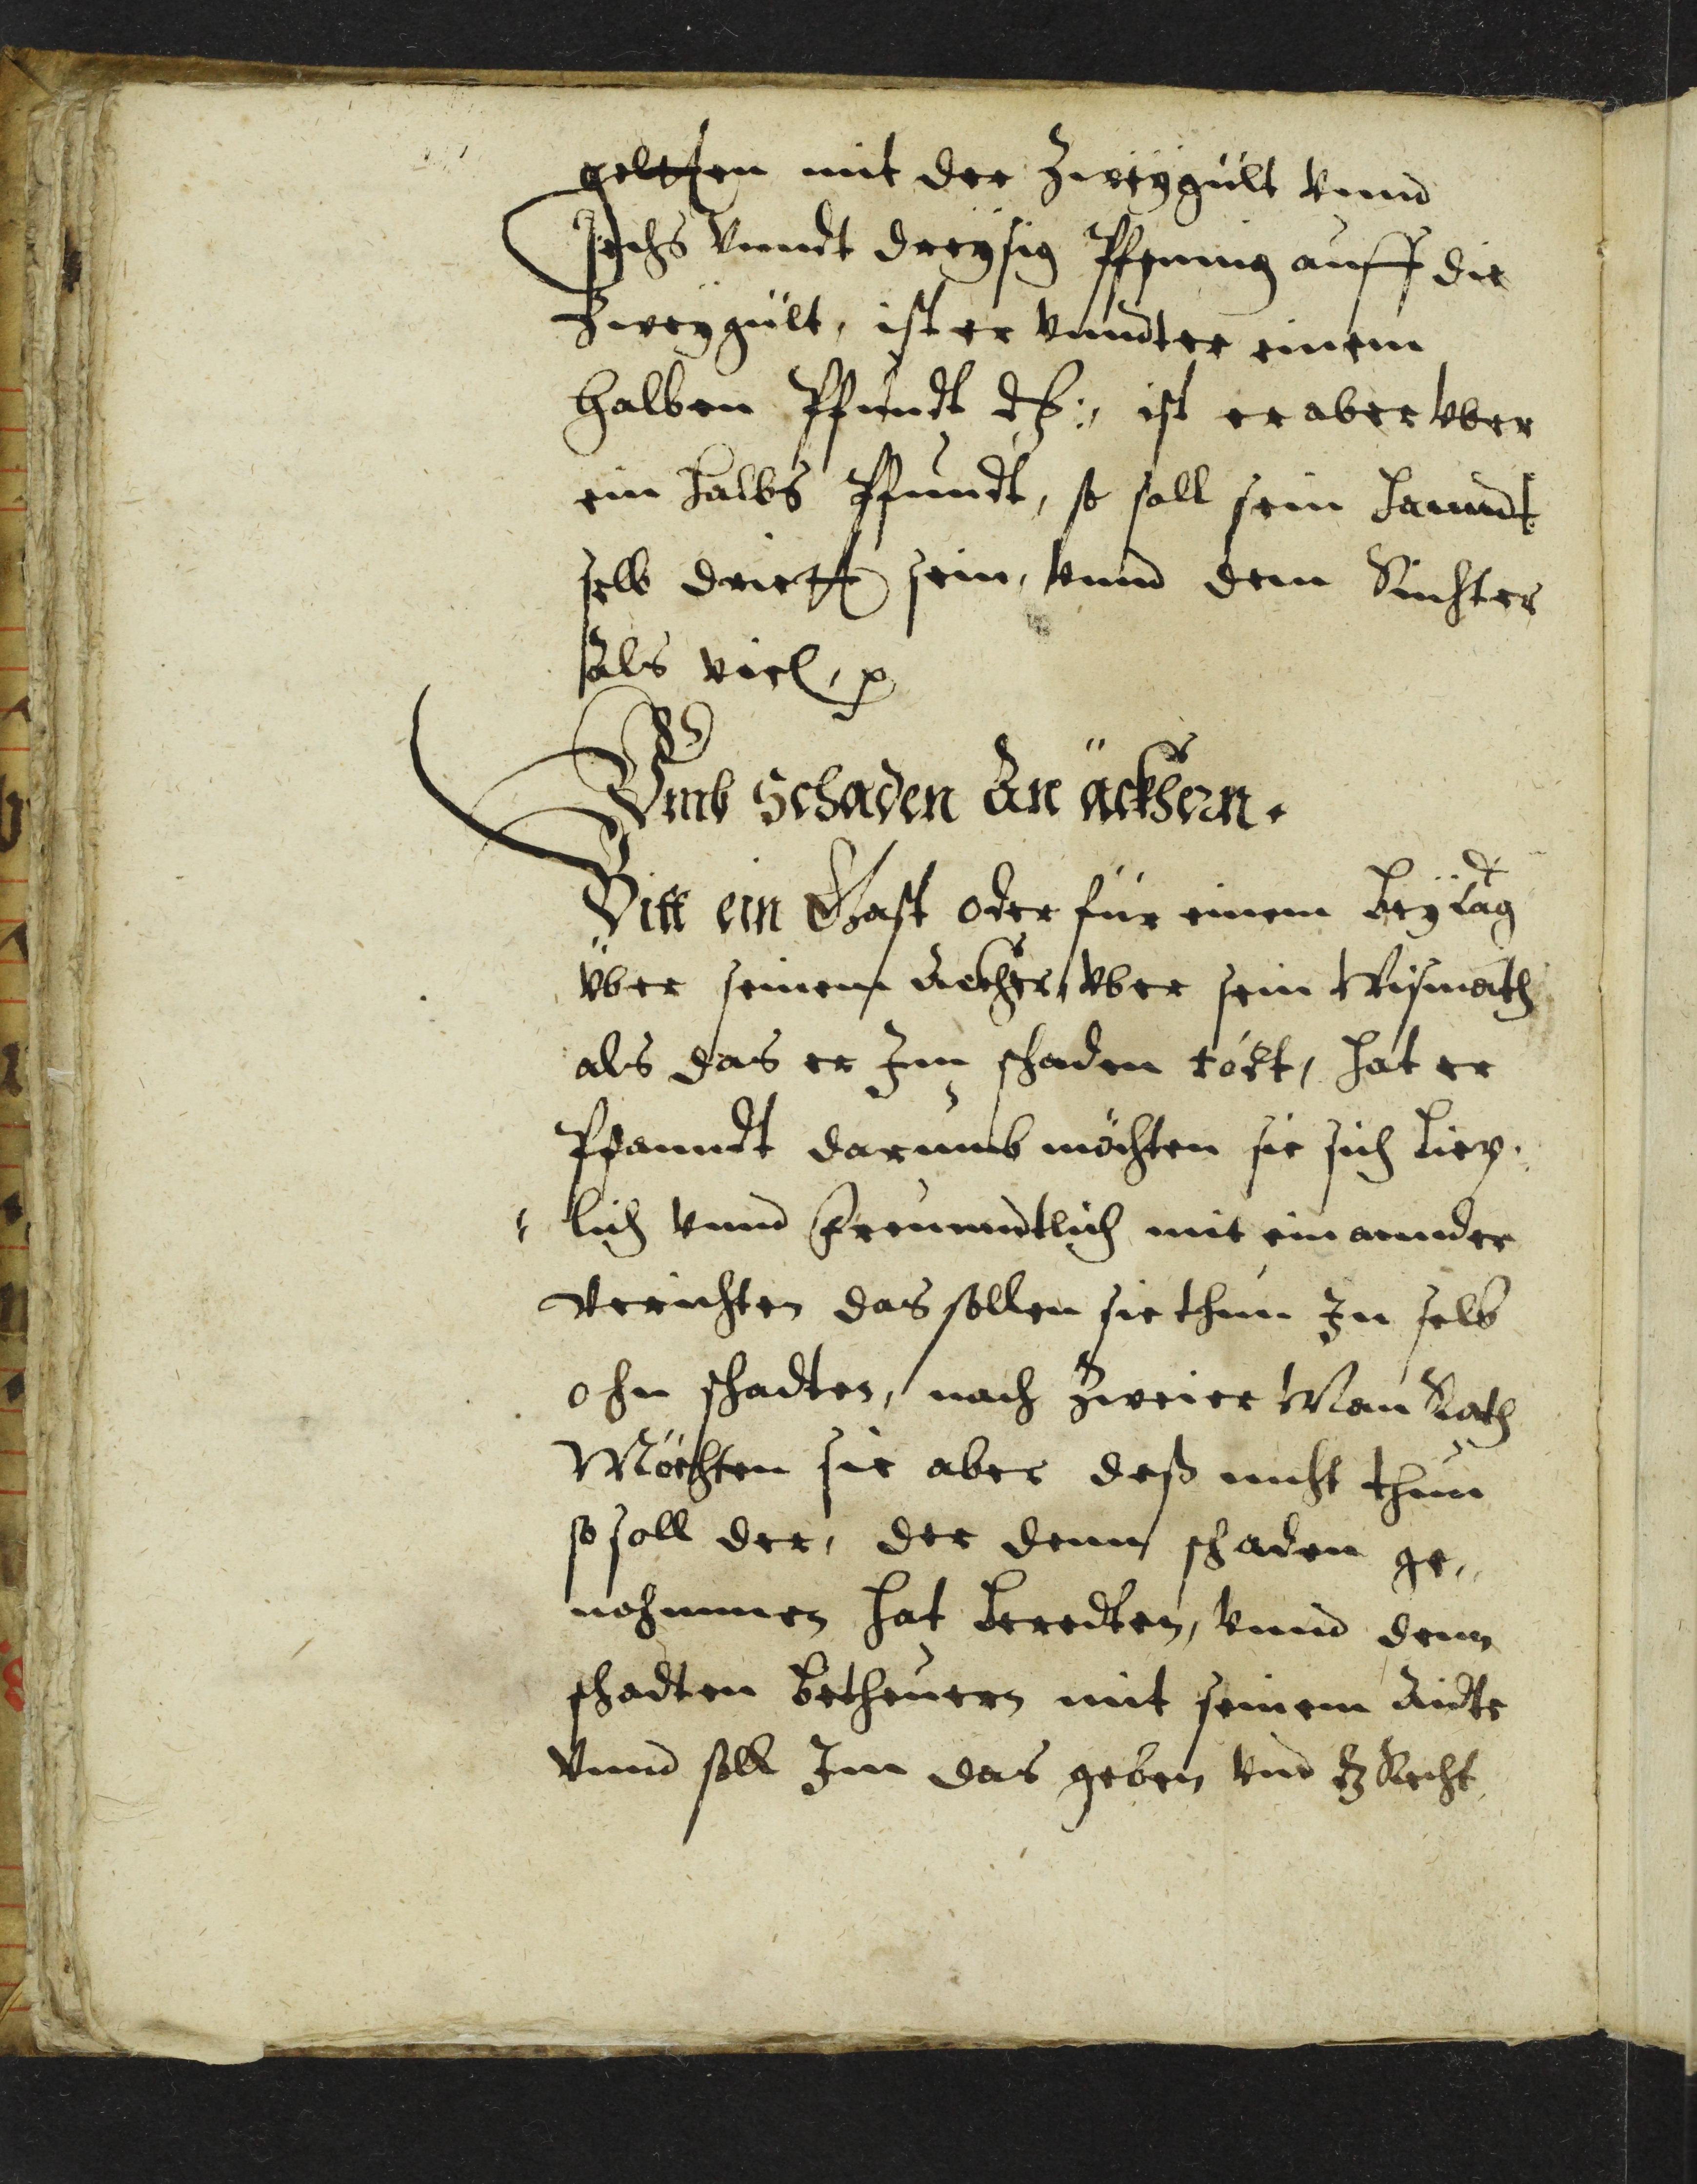 geltten mit der Zweÿgült vnnd
sechs vnndt dreÿsig Pfenig auff die
Zweÿgült, ist er vnndter einem
halben Pfundt
ist er aber vber
ein halbs Pfundt, so soll sein hanndt
selb dritt sein, vnnd dem Richter
als viel,
Vmb Schaden An äckhern.
Ritt ein Gast oder für einem beÿ tag
über seinem Ackher, vber sein Wismath
als das er Im schaden
hat er
Pfanndt darumb möchten sie sich liep-
lich vnnd freunndtlich mit einannder
verichten das sollen sie thun In selb
ohn schadten, nach Zweier Man Rath
Möchten sie aber deß nicht thun
so soll der, der denn schaden ge-
nohmmen hat beredten, vnnd denn
schadten betheuern mit seinem Aidte
vnnd soll Im das geben vnd Recht